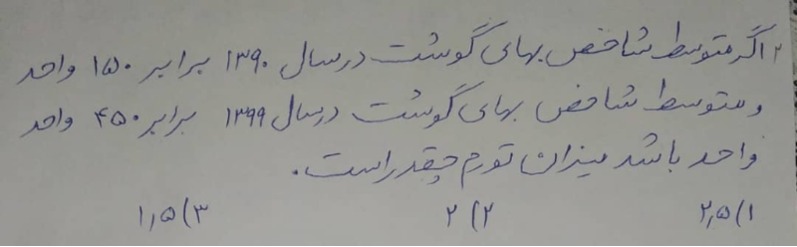 ۲) اگر متوسط شاخص بهای گوشت در سال ۱۳۹۰ برابر ۱۵۰ واحد
و متوسط شاخص بهای گوشت در سال ۱۳۹۹ برابر ۴۵۰ واحد
واحد باشد میزان تورم چقدر است.
۱) ۲٫۵ ۲) ۲ ۳) ۱٫۵